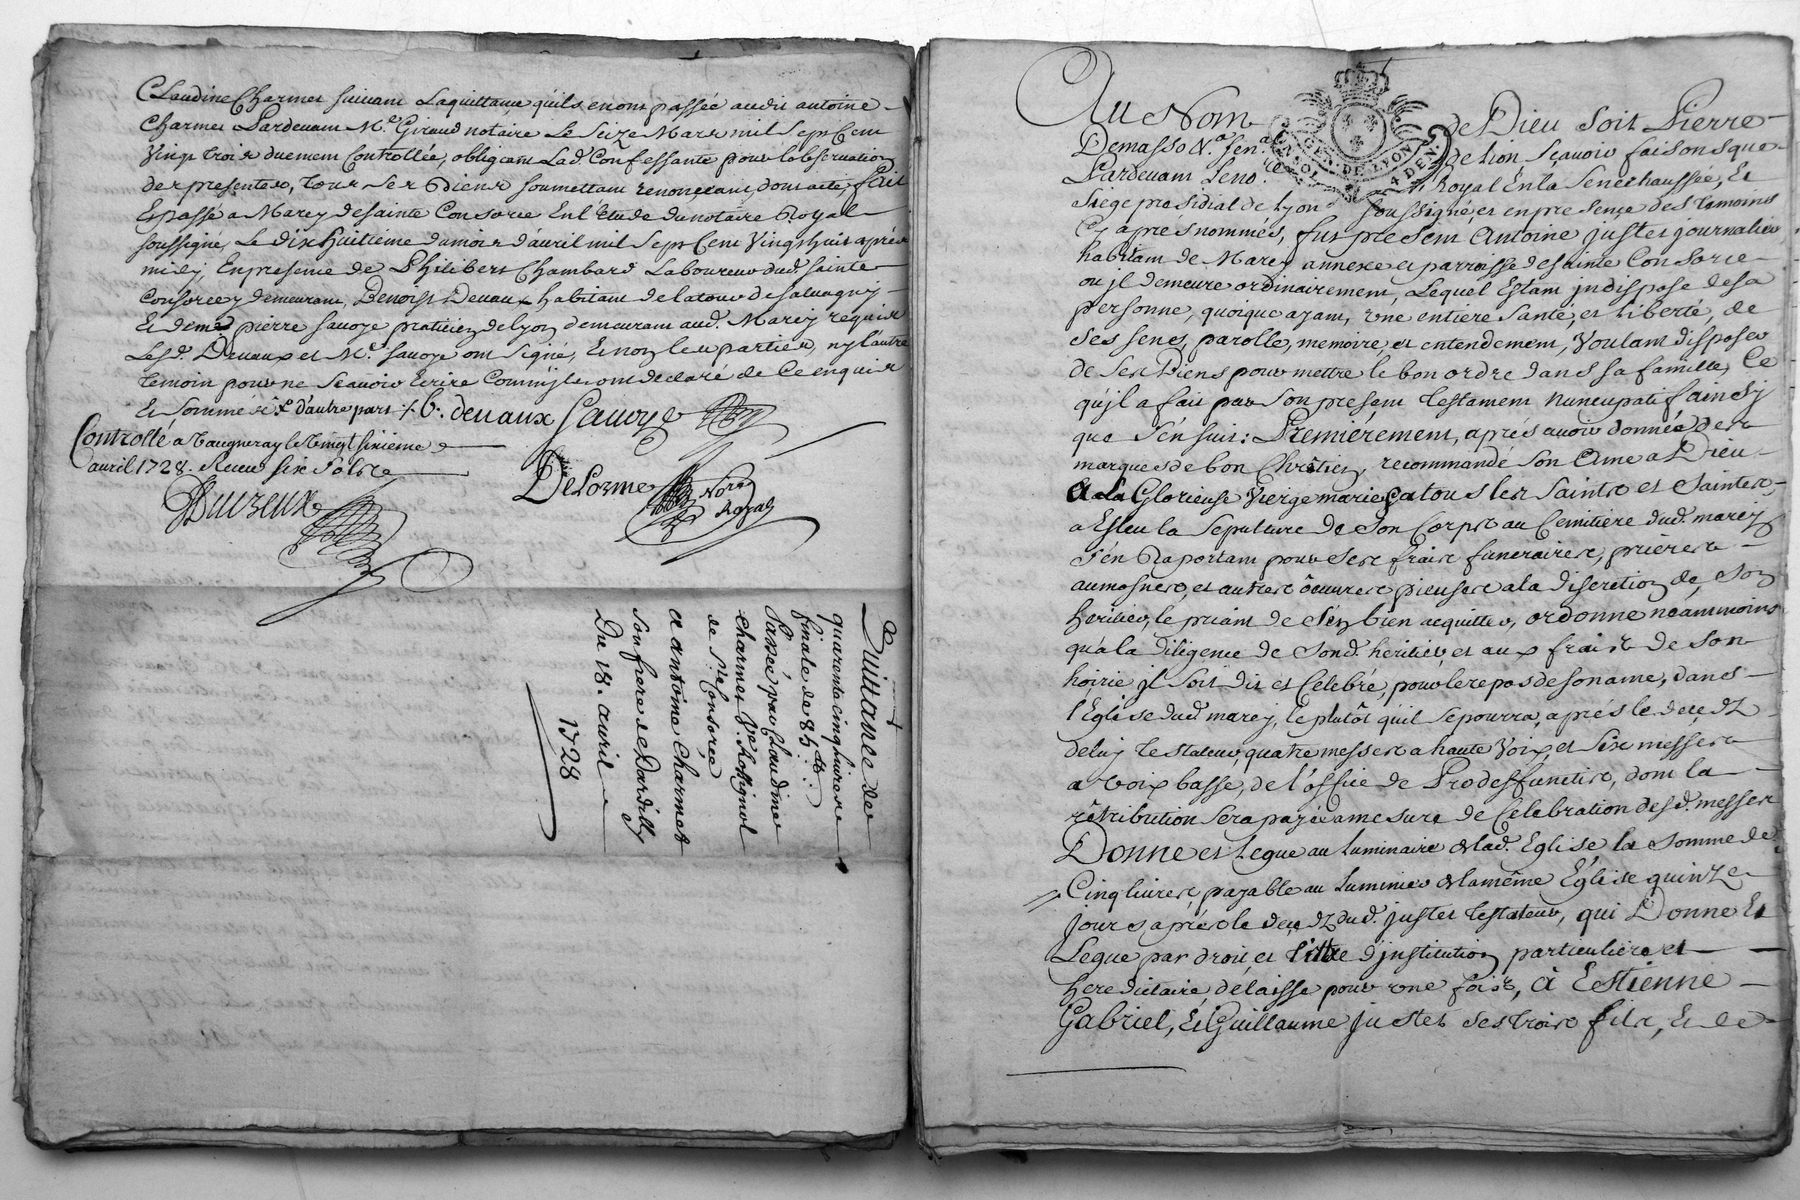 Claudine Charmet suivant la quittance qu'ils en ont passée audit antoine
Charmet Pardevant Me. Giraud notaire Le Seize Mars mil Sept Cent
Vingt trois duement Controllée, obligeant Lad. Confessante pour lobservation
des presentes, tous ses Biens soumettant renoncant, dont acte, fait
Et passé a Marcy de sainte Consorce En l'Etude du notaire Royal
soussigné, Le dix Huitieme du mois d'avril mil Sept Cent Vingt huit aprés
midy, En presence de Philibert Chambard Laboureur dud. sainte
Consorce y demeurant, Benoist Devaux habitant de la tour de salvagny
Et de me. pierre savoye praticien de lyon demeurant aud. Marcy requis
Lesd. Devaux et Me. savoye ont signé, Et non les parties, ny l'autre
temoin pour ne Scavoir Ecrire Comm'ils ont declaré de Ce enquis
Et Sommés d'autre part b. devaux Savoye
Controllé a Vaugneray le Vingt sixieme
avril 1728. Receu six sols
Delorme Nore. Royal
Ducreux
Quittance de
quarante cinq livres
finale de 85 lt.
Passée par Claudine
Charmet Ve. Rossignol
de Ste. Consorce
a antoine Charmet
son frere de Dardilly
Du 18. avril
1728
Au Nom de Dieu soit Pierre
GEN. DE LYON
4 DEN.
de lion Sçavoir faisons que
Pardevant Leno.re Royal En la Senechaussée, Et
Siege presidial de Lyon soussigné, et en presence des temoins
Cy aprés nommés, fut present Antoine Justet journalier
habitant de Marcy annexe et parroisse de sainte Consorce
ou jl demeure ordinairement, Lequel Estant jndispose de sa
personne, quoique ayant, une entiere santé, et liberté, de
ses sens, parolle, memoire, et entendement, Voulant disposer
de ses Biens pour mettre le bon ordre dans sa famille, Ce
qu'jl a fait par Son present testament Nuncupatif ainsj
que s'en suit: Premiérement, aprés avoir donnée des
marques de bon Chrêtien, recommandé son Ame a Dieu
A La Glorieuse Vierge marie, a tous les saints et saintes,
a Esleu la Sepulture de Son Corps au Cemitiere dud. marcy
s'en Raportant pour ses frais funeraires, priéres
aumosnes, et autres oeuvres pieuses a la discretion de son
heritier, le priant de s'en bien acquitter, ordonne neammoins
qu'a la diligence de Sond. heritier, et aux frais de son
hoirie jl soit dit et Celebré, pour le repos de son ame, dans
l'Eglise dud. marcy, le plutôt qu'il se pourra, aprés le decedz
deluy testateur, quatre messes a haute Voix, et six messes
a Voix basse, de l'office de Prodesfunctis, dont la
rétribution sera payée a mesure de Celebration desd. messes
Donne et Legue au Luminaire de lad. Eglise la somme de
Cinq livres, payable au Luminier de la même Église quinze
jours aprés le decedz dud. justet testateur, qui Donne Et
Legue par droit, et tittre d'jnstitution particuliere et
hereditaire, delaisse pour une fois, a Estienne
Gabriel, Et Guillaume Justet ses trois fils, Et de